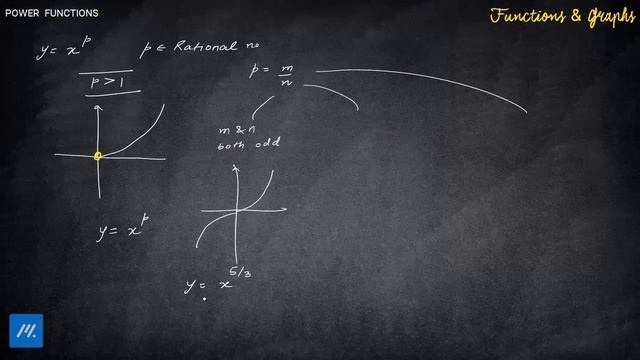 POWER FUNCTIONS
Functions & Graphs
y = x^p p ∈ Rational no
p > 1
p = m/n
m & n
both odd
y = x^p
y = x^5/3
M.